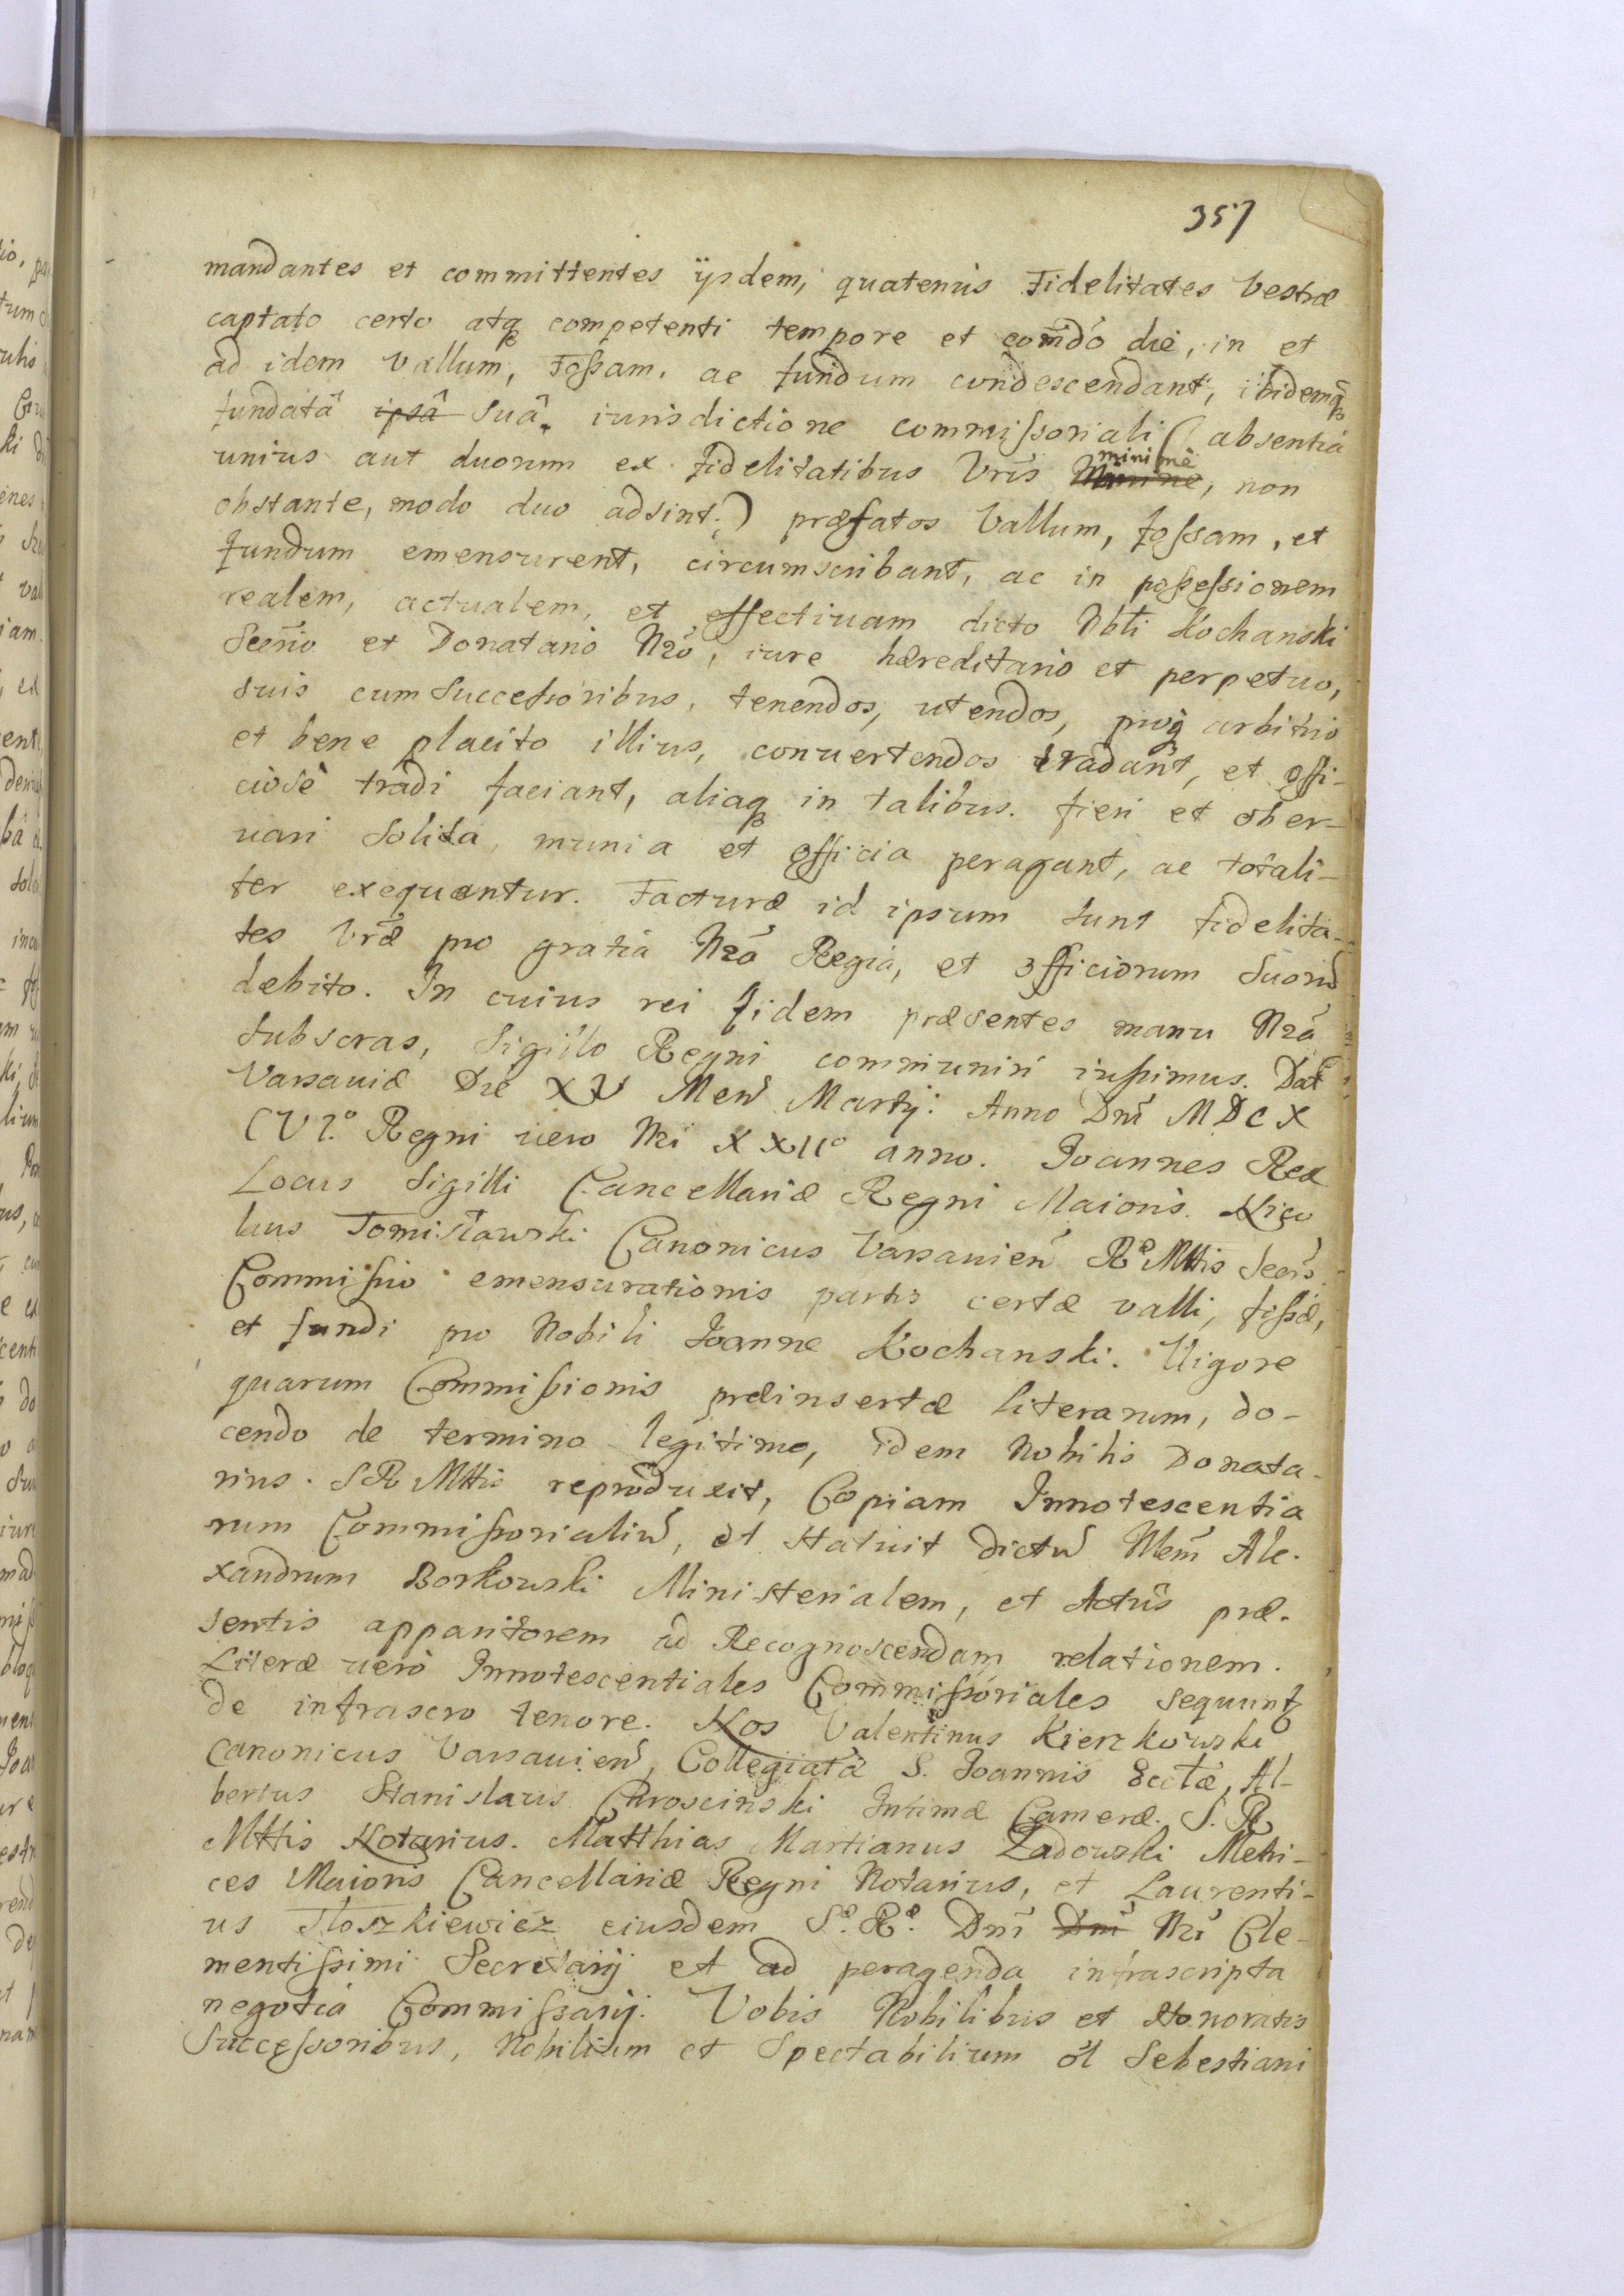 357
mandantes et committentes ijsdem, quatenus Fidelitates Vestræ
captato certo atq competenti tempore et com̃dó die, in et
ad idem Vallum, Fossam, ac fundum condescendant, ibidemq
fundatâ ipsâ Suâ iurisdictione commissoriali (absentiâ
unius aut duorum ex Fidelitatibus Vr̃is minimè, non
obstante, modo duo adsint.) præfatos Vallum, fossam, et
fundum emensurent, circumscribant, ac in possessionem
realem, actualem, et effectiuam dicto Nb̃li Kochanski
Secr̃io et Donatario Nr̃o, iure hæreditario et perpetuo,
suis cum Successoribus, tenendos, utendos, proq arbitrio
et bene placito illius, conuertendos tradant, et offi-
ciosè tradi faciant, aliaq in talibus fieri et obser-
uari Solita, munia et officia peragant, ac totali-
ter exequantur. Facturæ id ipsum sunt fidelita-
tes Vr̃æ pro gratiâ Nr̃â Regiâ, et officiorum Suorũ
debito. In cuius rei fidem præsentes manu Nr̃â
Subscras, Sigillo Regni communiri iussimus. Dat
Varsauiæ Die XV Men̄ Martij. Anno Dnĩ MDCX
CVI.º Regni uero Nr̃i XXIIº anno. Joannes Rex
Locus Sigilli Cancellariæ Regni Maioris. Nico
laus Tomisławski Canonicus Varsauien̄ Rº Mttis Secr̃s.
Commissio emensurationis partis certæ valli, fossæ,
et fundi pro Nobili Joanne Kochanski. Vigore
quarum Commissionis præinsertæ literarum, do-
cendo de termino legitimo, idem Nobilis Donata-
rius SR Mttis reproduxit, Copiam Innotescentia
rum Commissorialiũ, et statuit dictũ Mem̃ Ale-
xandrum Borkowski Ministerialem, et Actus præ-
sentis apparitorem ad Recognoscendam relationem.
Literæ uerò Innotescentiales Commissoriales sequunt
de infrascro tenore. Nos Valentinus Kierzkowski
Canonicus Varsauien̄, Collegiatæ S. Joannis Ecctæ, Al-
bertus Stanislaus Chroscinski Intimæ Cameræ S. R
Mttis Notarius. Matthias Martianus Ładowski Metri-
ces Maioris Cancellariæ Regni Notarius, et Laurenti-
us Tłoszkiewicz eiusdem Sº. Rº. Dnĩ Dnĩ Nr̃i Cle-
mentissimi Secretarij et ad peragenda infrascripta
negotia Commissarij. Vobis Nobilibus et Honoratis
Successoribus, Nobilium et Spectabilium ol Sebestiani